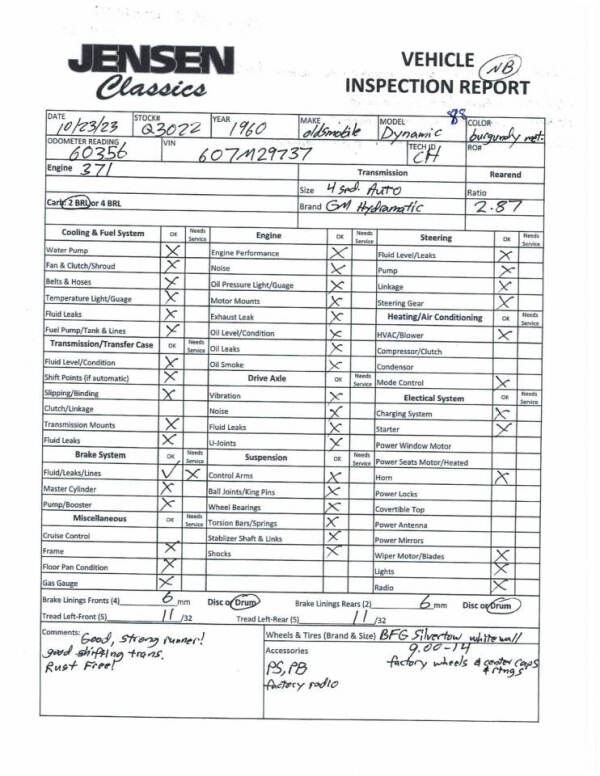 JENSEN
Classics
VEHICLE NB
INSPECTION REPORT
DATE 10/23/23 STOCK# Q3022 YEAR 1960 MAKE oldsmobile MODEL Dynamic 88 COLOR burgundy met.
ODOMETER READING 60356 VIN 607M29737 TECH ID CH RO#
Engine 371 Transmission Rearend
Size 4 spd. Auto Ratio
Carb: 2 BRL or 4 BRL Brand GM Hydramatic 2.87
Cooling & Fuel System OK Needs Service Engine OK Needs Service Steering OK Needs Service
Water Pump X Engine Performance X Fluid Level/Leaks X
Fan & Clutch/Shroud X Noise X Pump X
Belts & Hoses X Oil Pressure Light/Guage X Linkage X
Temperature Light/Guage X Motor Mounts X Steering Gear X
Fluid Leaks X Exhaust Leak X Heating/Air Conditioning OK Needs Service
Fuel Pump/Tank & Lines X Oil Level/Condition X HVAC/Blower X
Transmission/Transfer Case OK Needs Service Oil Leaks X Compressor/Clutch
Fluid Level/Condition X Oil Smoke X Condensor
Shift Points (if automatic) X Drive Axle OK Needs Service Mode Control X
Slipping/Binding X Vibration X Electical System OK Needs Service
Clutch/Linkage Noise X Charging System X
Transmission Mounts X Fluid Leaks X Starter X
Fluid Leaks X U-Joints X Power Window Motor
Brake System OK Needs Service Suspension OK Needs Service Power Seats Motor/Heated
Fluid/Leaks/Lines ✓ X Control Arms X Horn X
Master Cylinder X Ball Joints/King Pins X Power Locks
Pump/Booster X Wheel Bearings X Covertible Top
Miscellaneous OK Needs Service Torsion Bars/Springs X Power Antenna
Cruise Control Stablizer Shaft & Links X Power Mirrors
Frame X Shocks X Wiper Motor/Blades X
Floor Pan Condition X Lights X
Gas Gauge X Radio X
Brake Linings Fronts (4) 6 mm Disc or Drum Brake Linings Rears (2) 6 mm Disc or Drum
Tread Left-Front (5) 11 /32 Tread Left-Rear (5) 11 /32
Comments: Good, strong runner! Wheels & Tires (Brand & Size) BFG Silvertow whitewall
good shifting trans. Accessories 9.00-14
Rust Free! PS, PB factory wheels & center caps & rings
factory radio